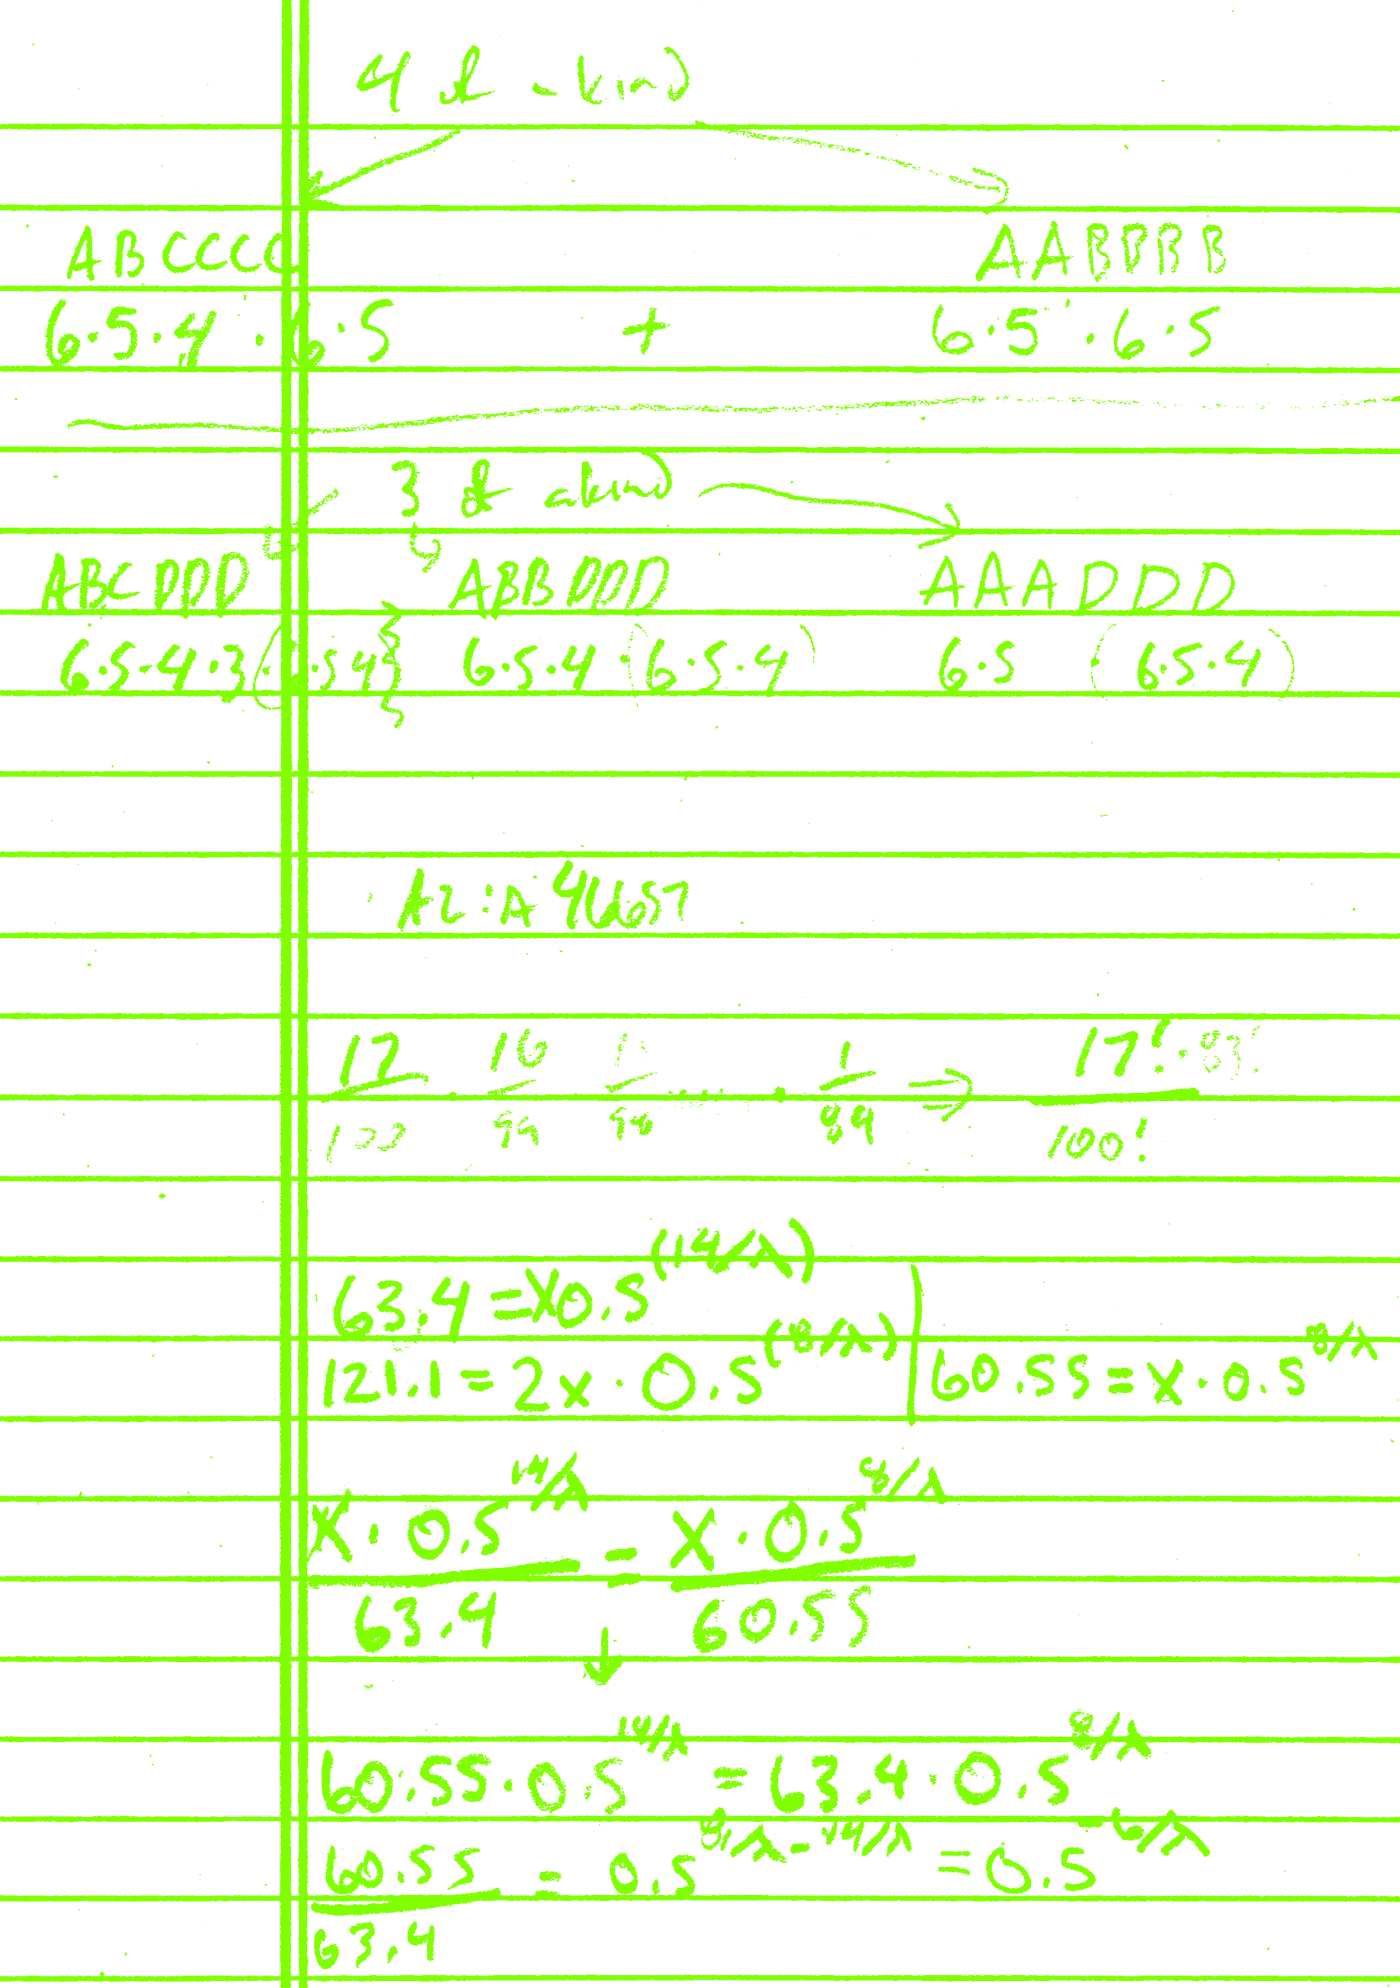 4 of a kind
ABCCCC AABBBB
6·5·4·6·5 + 6·5·6·5
3 of a kind
ABCDDD ABBDDD AAADDD
6·5·4·3(6·5·4) 6·5·4·(6·5·4) 6·5·(6·5·4)
17/100 · 16/99 · 1 /98 ..... · 1/89 ⇒ 17!·83!/100!
63.4 = X0.5^(14/λ)
121.1 = 2x·0.5^(8/λ) | 60.55 = x·0.5^8/λ
X·0.5^14/λ / 63.4 = X·0.5^8/λ / 60.55
↓
60.55·0.5^14/λ = 63.4·0.5^8/λ
60.55/63.4 = 0.5^8/λ-14/λ = 0.5^-6/λ